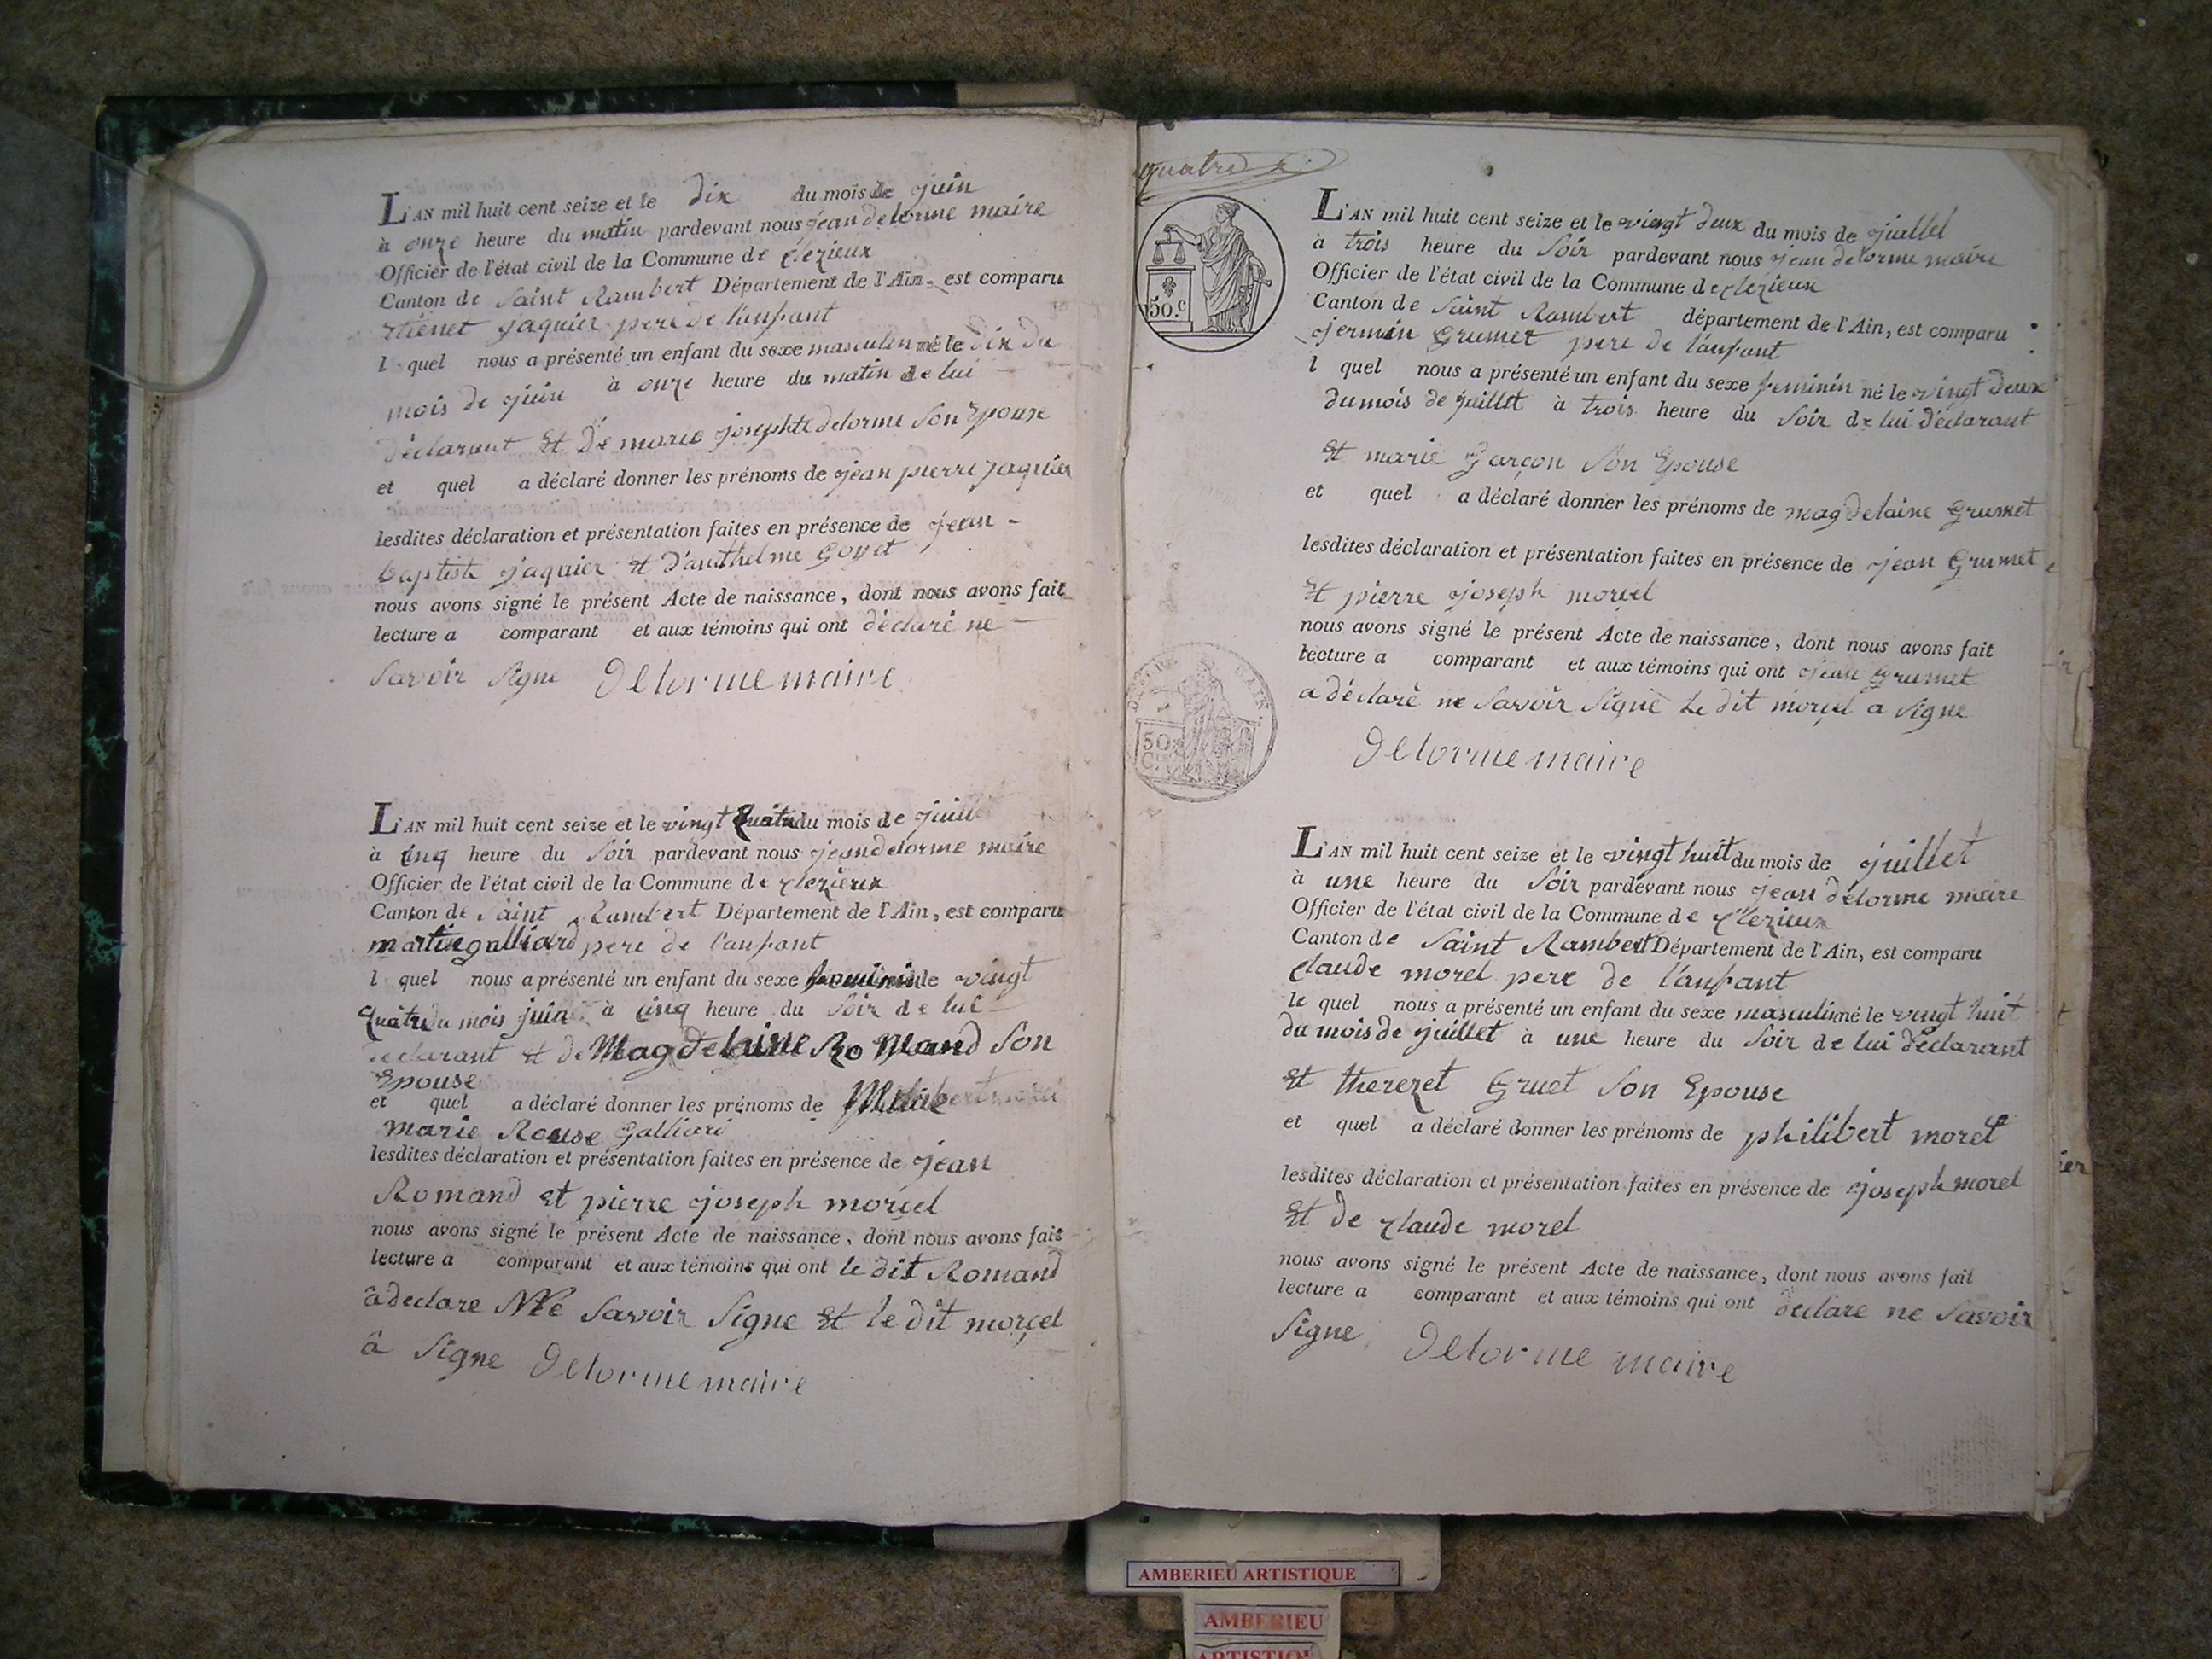 L'AN mil huit cent seize et le dix du mois de juin
à onze heure du matin pardevant nous jean delorme maire
Officier de l'état civil de la Commune de Clezieux
Canton de Saint Rambert Département de l'Ain, est comparu
etienet jaquier pere de l'anfant
l quel nous a présenté un enfant du sexe masculin né le dix du
mois de juin à onze heure du matin de lui
déclarant et de marie josephte delorme son Epouse
et quel a déclaré donner les prénoms de jean pierre jaquier
lesdites déclaration et présentation faites en présence de jean
baptiste jaquier et d'anthelme Goyet
nous avons signé le présent Acte de naissance, dont nous avons fait
lecture a comparant et aux témoins qui ont déclaré ne
savoir signe Delorme maire
L'AN mil huit cent seize et le vingt quatre du mois de juillet
à cinq heure du soir pardevant nous jean delorme maire
Officier de l'état civil de la Commune de Clezieux
Canton de Saint Rambert Département de l'Ain, est comparu
martin galliard pere de l'anfant
l quel nous a présenté un enfant du sexe feminin le vingt
quatre du mois juin à cinq heure du soir de lui
déclarant et de Magdelaine Romand son
Epouse
et quel a déclaré donner les prénoms de
marie Rouse Galliard
lesdites déclaration et présentation faites en présence de jean
Romand et pierre joseph morcel
nous avons signé le présent Acte de naissance, dont nous avons fait
lecture a comparant et aux témoins qui ont le dit Romand
a declare Ne savoir signe et le dit morcel
a signe Delorme maire
quatre
50.c
L'AN mil huit cent seize et le vingt deux du mois de juillet
à trois heure du soir pardevant nous jean delorme maire
Officier de l'état civil de la Commune de Clezieux
Canton de Saint Rambert département de l'Ain, est comparu
jermin Grumet pere de l'anfant
l quel nous a présenté un enfant du sexe feminin né le vingt deux
du mois de juillet à trois heure du soir de lui déclarant
et marie Garçon son Epouse
et quel a déclaré donner les prénoms de magdelaine Grumet
lesdites déclaration et présentation faites en présence de jean Grumet
et pierre joseph morcel
nous avons signé le présent Acte de naissance, dont nous avons fait
lecture a comparant et aux témoins qui ont jean Grumet
a déclaré ne savoir signé le dit morcel a signe
Delorme maire
50
C.
L'AN mil huit cent seize et le vingt huit du mois de juillet
à une heure du soir pardevant nous jean delorme maire
Officier de l'état civil de la Commune de Clezieux
Canton de Saint Rambert Département de l'Ain, est comparu
claude morel pere de l'anfant
le quel nous a présenté un enfant du sexe masculin né le vingt huit
du mois de juillet à une heure du soir de lui déclarant
et therezet Gruet son Epouse
et quel a déclaré donner les prénoms de philibert morel
lesdites déclaration et présentation faites en présence de joseph morel
et de claude morel
nous avons signé le présent Acte de naissance, dont nous avons fait
lecture a comparant et aux témoins qui ont declare ne savoir
signe Delorme maire
AMBERIEU ARTISTIQUE
AMBERIEU
ARTISTIQUE